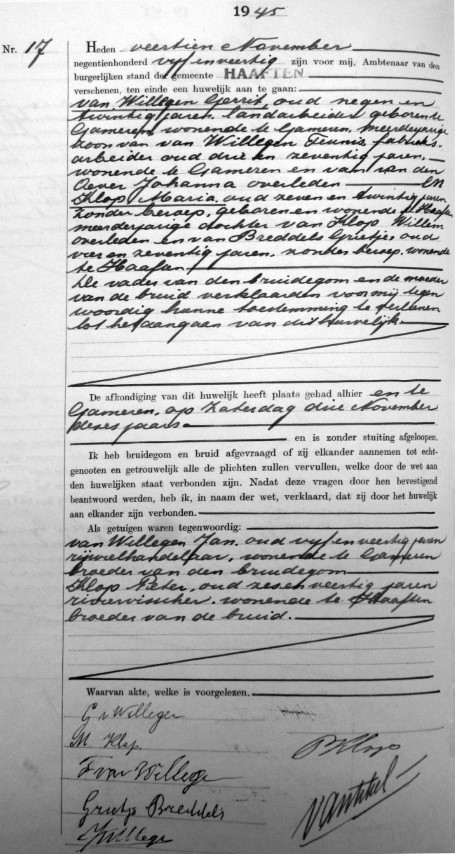 1945
Nr. 17 Heden veertien November
negentienhonderd vyf en veertig zijn voor mij, Ambtenaar van den
burgerlijken stand der gemeente HAAFTEN
verschenen, ten einde een huwelijk aan te gaan:
van Willegen Gerrit, oud negen en
twintig jaren, landarbeider geboren te
Gameren, wonende te Gameren, meerderjarige
zoon van van Willegen Teunis fabrieks
arbeider oud drie en zeventig jaren,
wonende te Gameren en van van den
Oever Johanna overleden en
Klop Maria oud zeven en twintig jaren
zonder beroep, geboren en wonende te Haaften
meerderjarige dochter van Klop Willem
overleden en van Breddels Grietje, oud
vier en zeventig jaren, zonder beroep, wonende
te Haaften
De vader van den bruidegom en de moeder
van de bruid verklaarden voor mij tegen
woordig hunne toestemming te verleenen
tot het aangaan van dit Huwelijk
De afkondiging van dit huwelijk heeft plaats gehad alhier en te
Gameren, op Zaterdag drie November
dezes jaars
en is zonder stuiting afgeloopen.
Ik heb bruidegom en bruid afgevraagd of zij elkander aannemen tot echt-
genooten en getrouwelijk alle de plichten zullen vervullen, welke door de wet aan
den huwelijken staat verbonden zijn. Nadat deze vragen door hen bevestigend
beantwoord werden, heb ik, in naam der wet, verklaard, dat zij door het huwelijk
aan elkander zijn verbonden.
Als getuigen waren tegenwoordig:
van Willegen Jan, oud vyf en veertig jaren
rijwielhandelaar, wonende te Gameren
broeder van den bruidegom
Klop Peter, oud zes en veertig jaren
riviervisscher, wonende te Haaften
broeder van de bruid.
Waarvan akte, welke is voorgelezen.
G v Willegen
M Klop
P Klop
T van Willege
Grietje Breddels